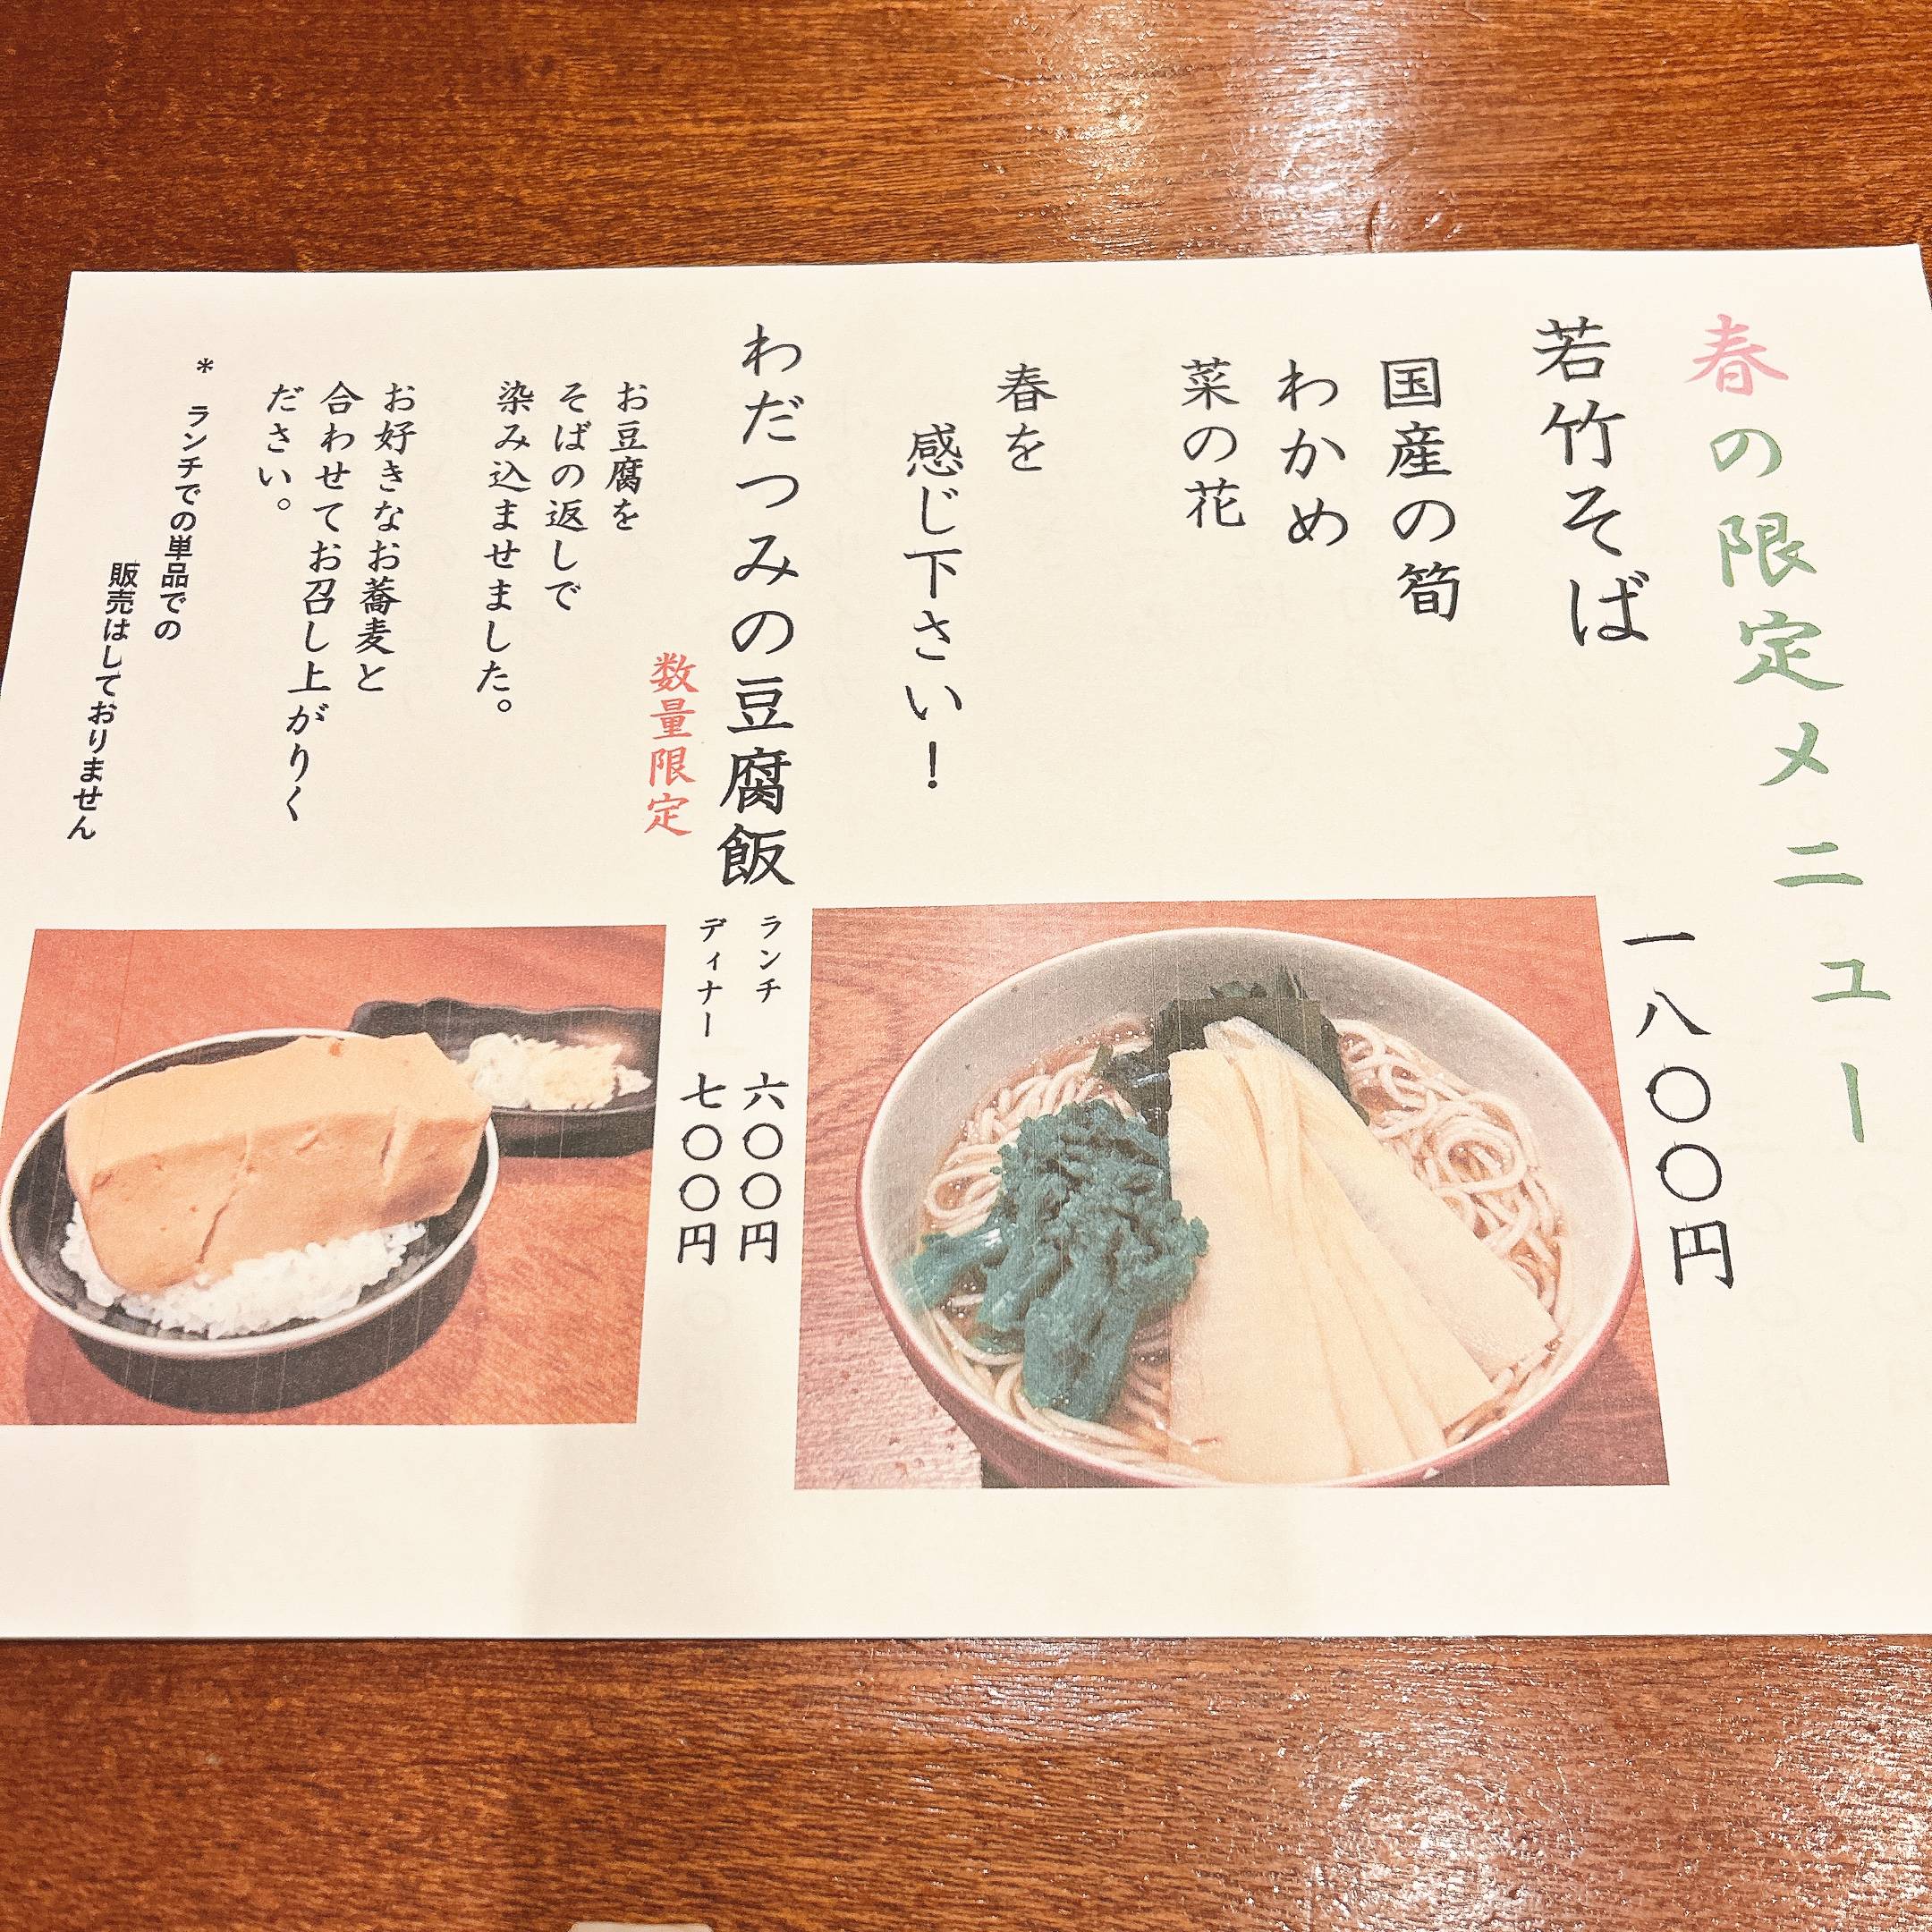 春の限定メニュー
若竹そば
一八〇〇円
国産の筍
わかめ
菜の花
春を
感じ下さい！
わだつみの豆腐飯
数量限定
ランチ 六〇〇円
ディナー 七〇〇円
お豆腐を
そばの返しで
染み込ませました。
お好きなお蕎麦と
合わせてお召し上がりく
ださい。
* ランチでの単品での
販売はしておりません